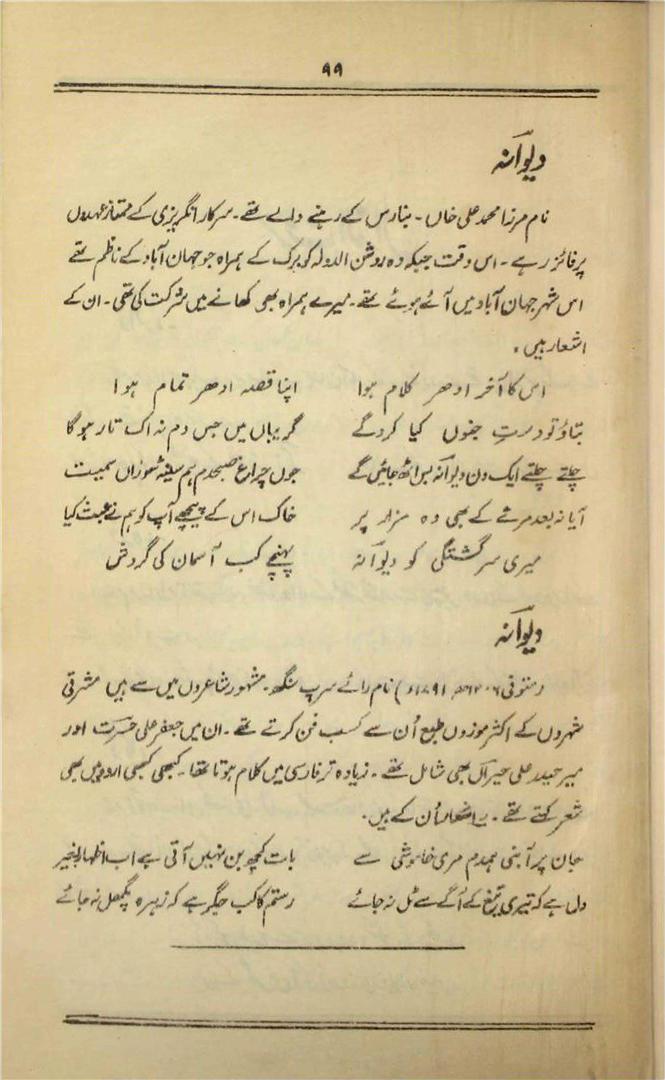 ۹۹
دیوآنہ
نام مرزا محمد علی خاں۔ بنارس کے رہنے والے تھے۔ سرکار انگریزی کے ممتاز عہدوں
پر فائز رہے۔ اس وقت جبکہ وہ روشن الدولہ کوبرک کے ہمراہ جو جہان آباد کے ناظم تھے
اس شہر جہان آباد میں آئے ہوئے تھے۔ میرے ہمراہ بھی کھانے میں شرکت کی تھی۔ ان کے
اشعار ہیں۔
اس کا آخر ادھر کلام ہوا اپنا قصہ ادھر تمام ہوا
بتاؤ تو دستِ جنوں کیا کرو گے گریباں میں جس دم نہ اک تار ہوگا
چلتے چلتے ایک دن دیوآنہ بس اٹھ جائیں گے جوں چراغ صبحدم ہم سینہ سوزاں سمیت
آیا نہ بعد مرنے کے بھی وہ مزار پر خاک اس کے پیچھے آپ کو ہم نے عبث کیا
میری سرگشتگی کو دیوآنہ پہنچے کب آسمان کی گردش
دیوآنہ
(متوفی ۱۲۰۶ھ ۱۷۹۱ء) نام رائے سرپ سنگھ۔ مشہور شاعروں میں سے ہیں مشرقی
شہروں کے اکثر موزوں طبع اُن سے کسب فن کرتے تھے۔ ان میں جعفر علی حسرت اور
میر حیدر علی حیراں بھی شامل تھے۔ زیادہ تر فارسی میں کلام ہوتا تھا۔ کبھی کبھی اردو میں بھی
شعر کہتے تھے۔ یہ اشعار اُن کے ہیں۔
جان پر آبنی ہمدم مری خاموشی سے بات کچھ بن نہیں آتی ہے اب اظہار بغیر
دل ہے کہ تیری تیغ کے آگے سے ٹل نہ جائے رستم کا کب جگر ہے کہ زہرہ پگھل نہ جائے